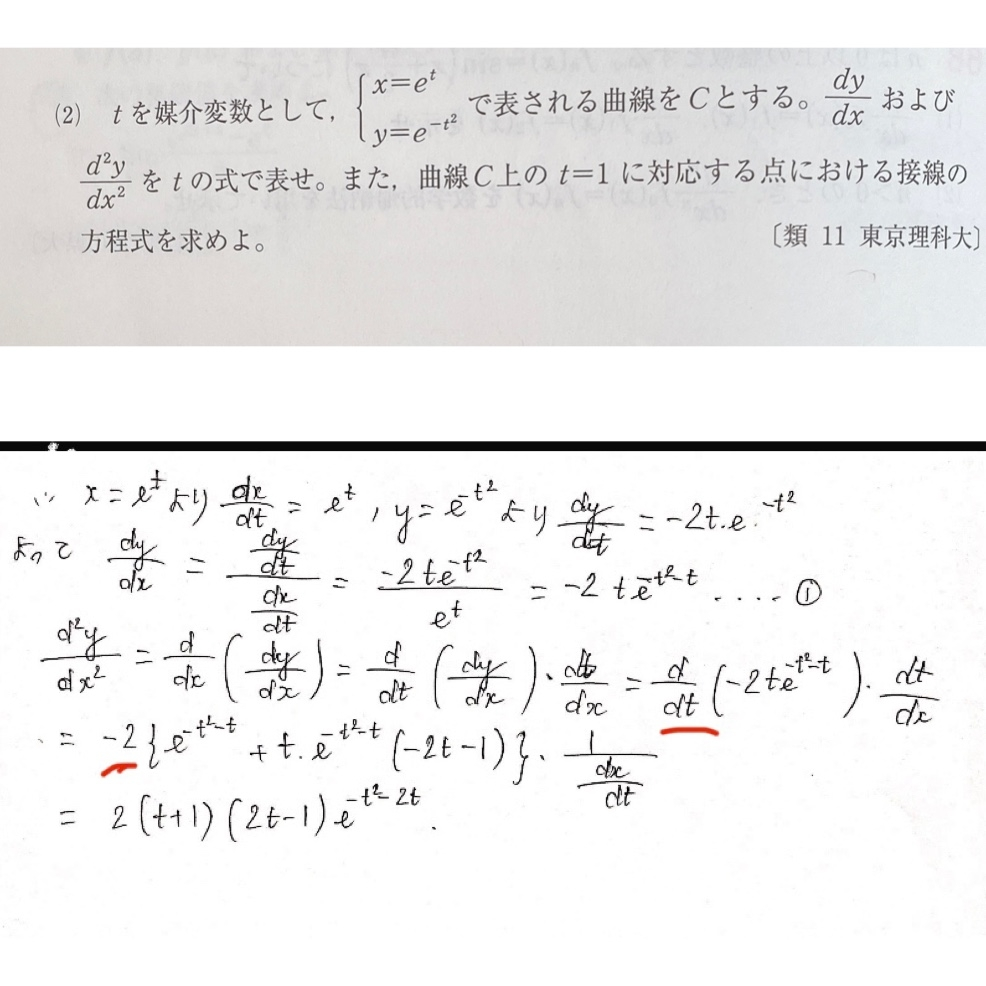 (2) tを媒介変数として, { x=e^t y=e^{-t^2} で表される曲線をCとする。dy/dx および
d²y/dx² をtの式で表せ。また, 曲線C上のt=1に対応する点における接線の
方程式を求めよ。 〔類 11 東京理科大〕
∵ x=e^t より dx/dt = e^t, y=e^{-t^2} より dy/dt = -2t.e^{-t^2}
よって dy/dx = (dy/dt)/(dx/dt) = -2te^{-t^2}/e^t = -2te^{-t^2-t} ・・・・①
d²y/dx² = d/dx (dy/dx) = d/dt (dy/dx)・dt/dx = d/dt (-2te^{-t^2-t})・dt/dx
= -2{e^{-t^2-t} + t.e^{-t^2-t}(-2t-1)}・1/(dx/dt)
= 2(t+1)(2t-1)e^{-t^2-2t}.